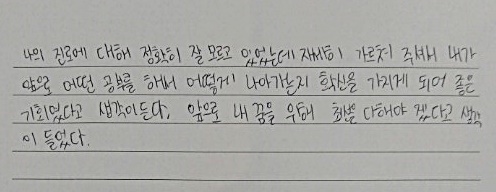 나의 진로에 대해 정확히 잘 모르고 있었는데 자세히 가르쳐 주셔서 내가
앞으로 어떤 공부를 해서 어떻게 나아가는지 확신을 가지게 되어 좋은
기회였다고 생각이든다. 앞으로 내 꿈을 위해 최선을 다해야 겠다고 생각
이 들었다.